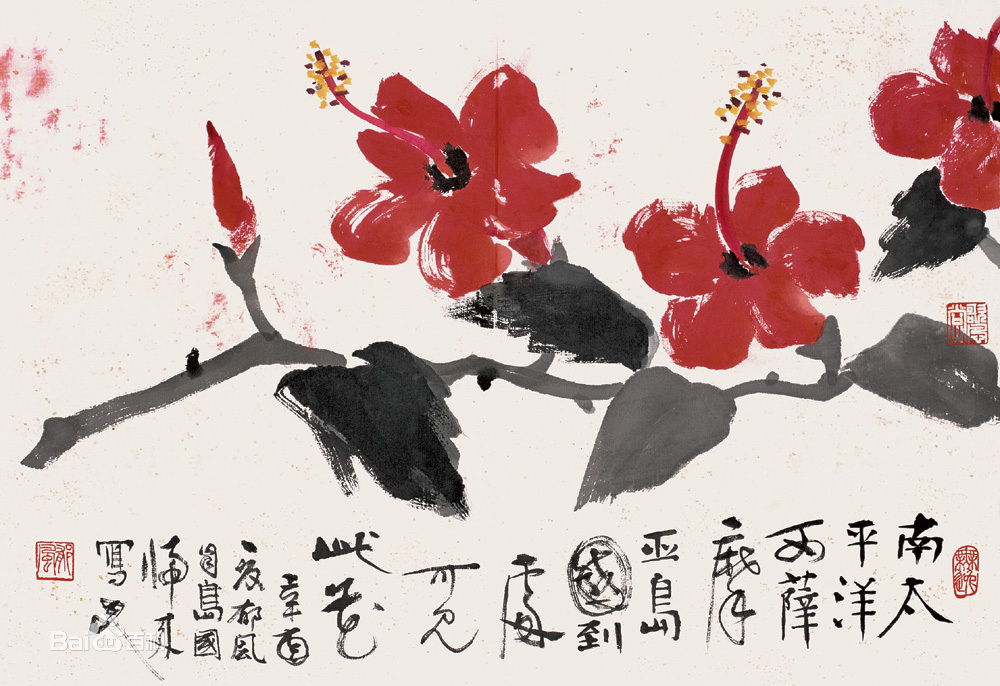 南太
平洋
西薩
摩
亞島
國到
處
可見
此花
辛酉
郁風
自島國
歸來
寫
郁風
Bai 百科